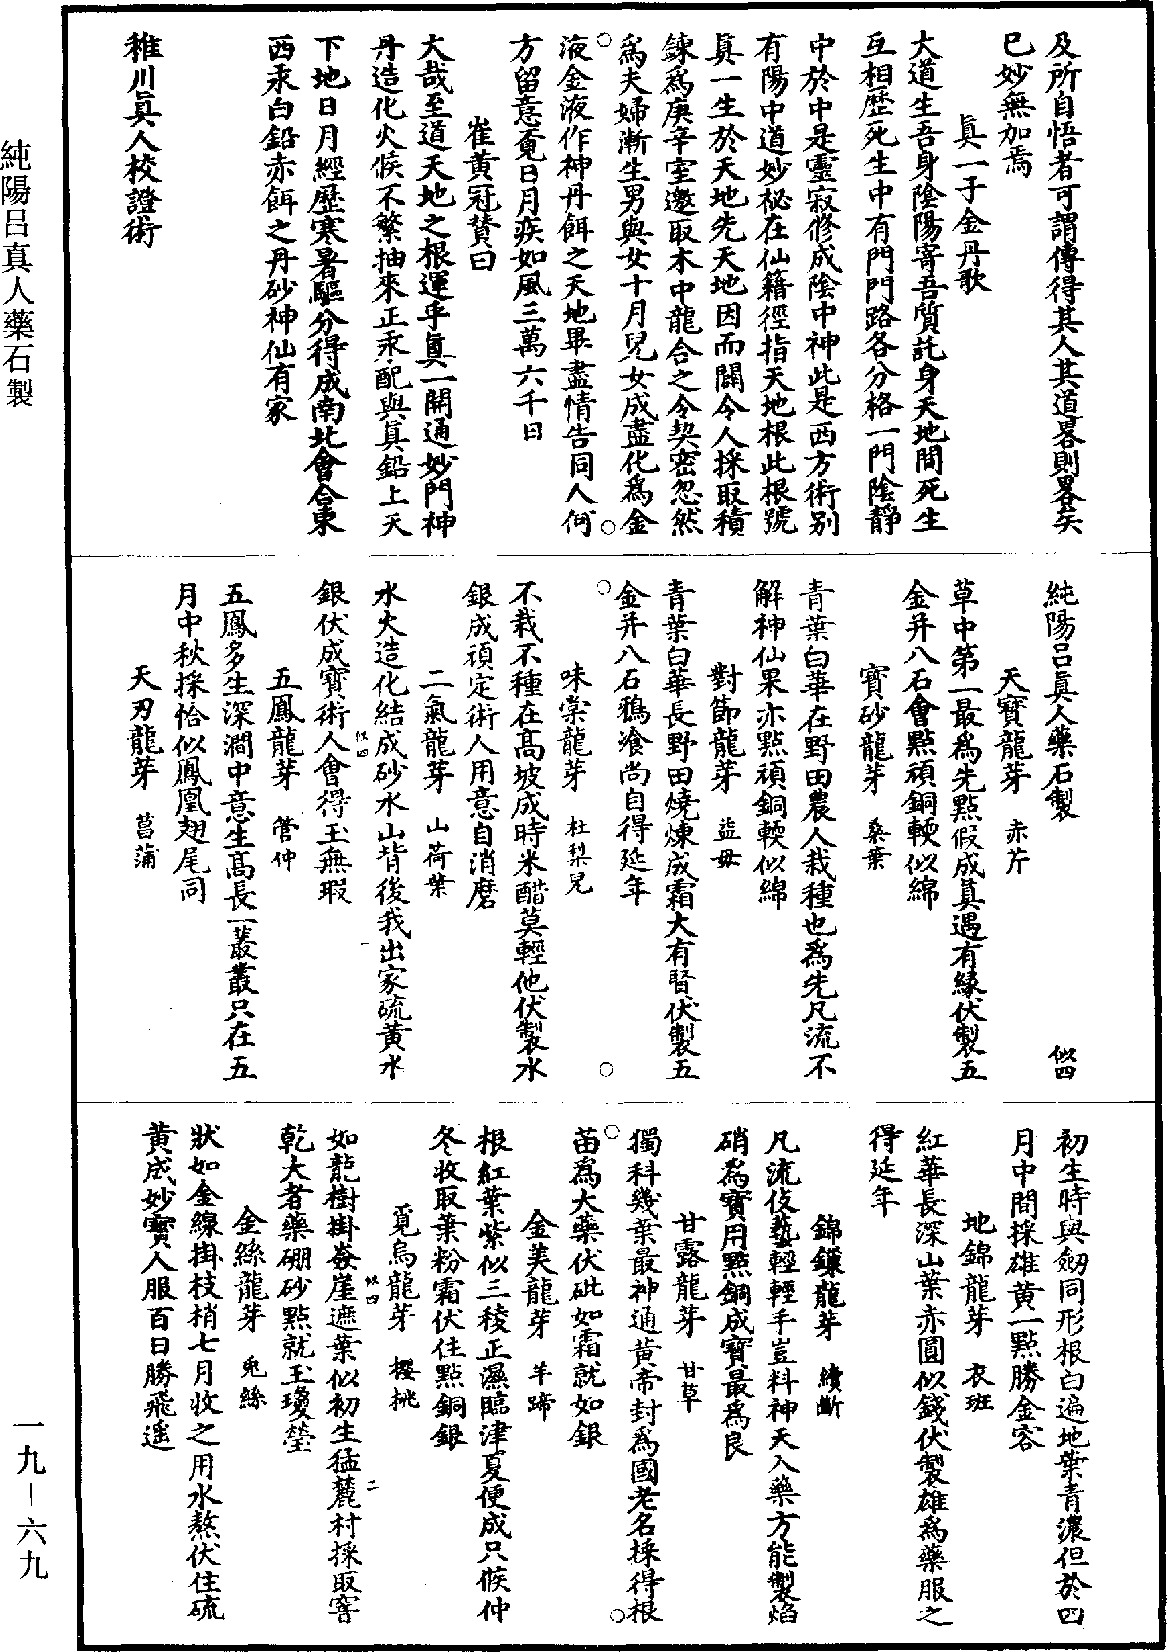 及所自悟者可謂傳得其人其道畧則畧矣
已妙無加焉
真一子金丹歌
大道生吾身陰陽寄吾質託身天地間死生
互相歷死生中有門門路各分格一門陰靜
中於中是靈寂修成陰中神此是西方術別
有陽中道妙祕在仙籍徑指天地根此根號
真一生於天地先天地因而闢令人採取積
鍊為庚辛室邀取木中龍合之令契密忽然
為夫婦漸生男與女十月兒女成盡化為金
液金液作神丹餌之天地畢盡情告同人何
方留意覔日月疾如風三萬六千日
崔黃冠贊曰
大哉至道天地之根運乎真一開通妙門神
丹造化火候不繁抽來正汞配與真鉛上天
下地日月經歷寒暑驅分得成南北會合東
西汞白鉛赤餌之丹砂神仙有家
稚川真人校證術
純陽呂真人藥石製 似四
天寶龍芽 赤芹
草中第一最為先點假成真遇有緣伏製五
金并八石會點頑銅輭似綿
寶砂龍芽 桑葉
青葉白華在野田農人栽種也為先凡流不
解神仙果亦點頑銅輭似綿
對節龍芽 益母
青葉白華長野田燒煉成霜大有賢伏製五
金并八石鴉飡尚自得延年
味棠龍芽 杜梨兒
不栽不種在高坡成時米醋莫輕他伏製水
銀成頑定術人用意自消磨
二氣龍芽 山荷葉
水火造化結成砂水山背後我出家硫黃水
銀伏成寶術人會得玉無瑕
五鳳龍芽 管仲
五鳳多生深澗中意生高長一叢叢只在五
月中秋採恰似鳳凰翅尾同
天刃龍芽 菖蒲
初生時與劒同形根白遍地葉青濃但於四
月中間採雄黃一點勝金容
地錦龍芽 衣班
紅華長深山葉赤圓似錢伏製雄為藥服之
得延年
錦鏁龍芽 續斷
凡流伎藝輕輕手豈料神天入藥方能製焰
硝為寶用點銅成寶最為良
甘露龍芽 甘草
獨科幾葉最神通黃帝封為國老名採得根
苗為大藥伏砒如霜就如銀
金美龍芽 羊蹄
根紅葉紫似三稜正濕臨津夏便成只候仲
冬收取葉粉霜伏住點銅銀
覔烏龍芽 櫻桃
如龍樹掛娑崖遮葉似初生猛麓村採取窨
乾大者藥硼砂點就玉瓊瑩
金絲龍芽 兎絲
狀如金線掛枝梢七月收之用水熬伏住硫
黃成妙寶人服百日勝飛遙
純陽呂真人藥石製
一九—六九